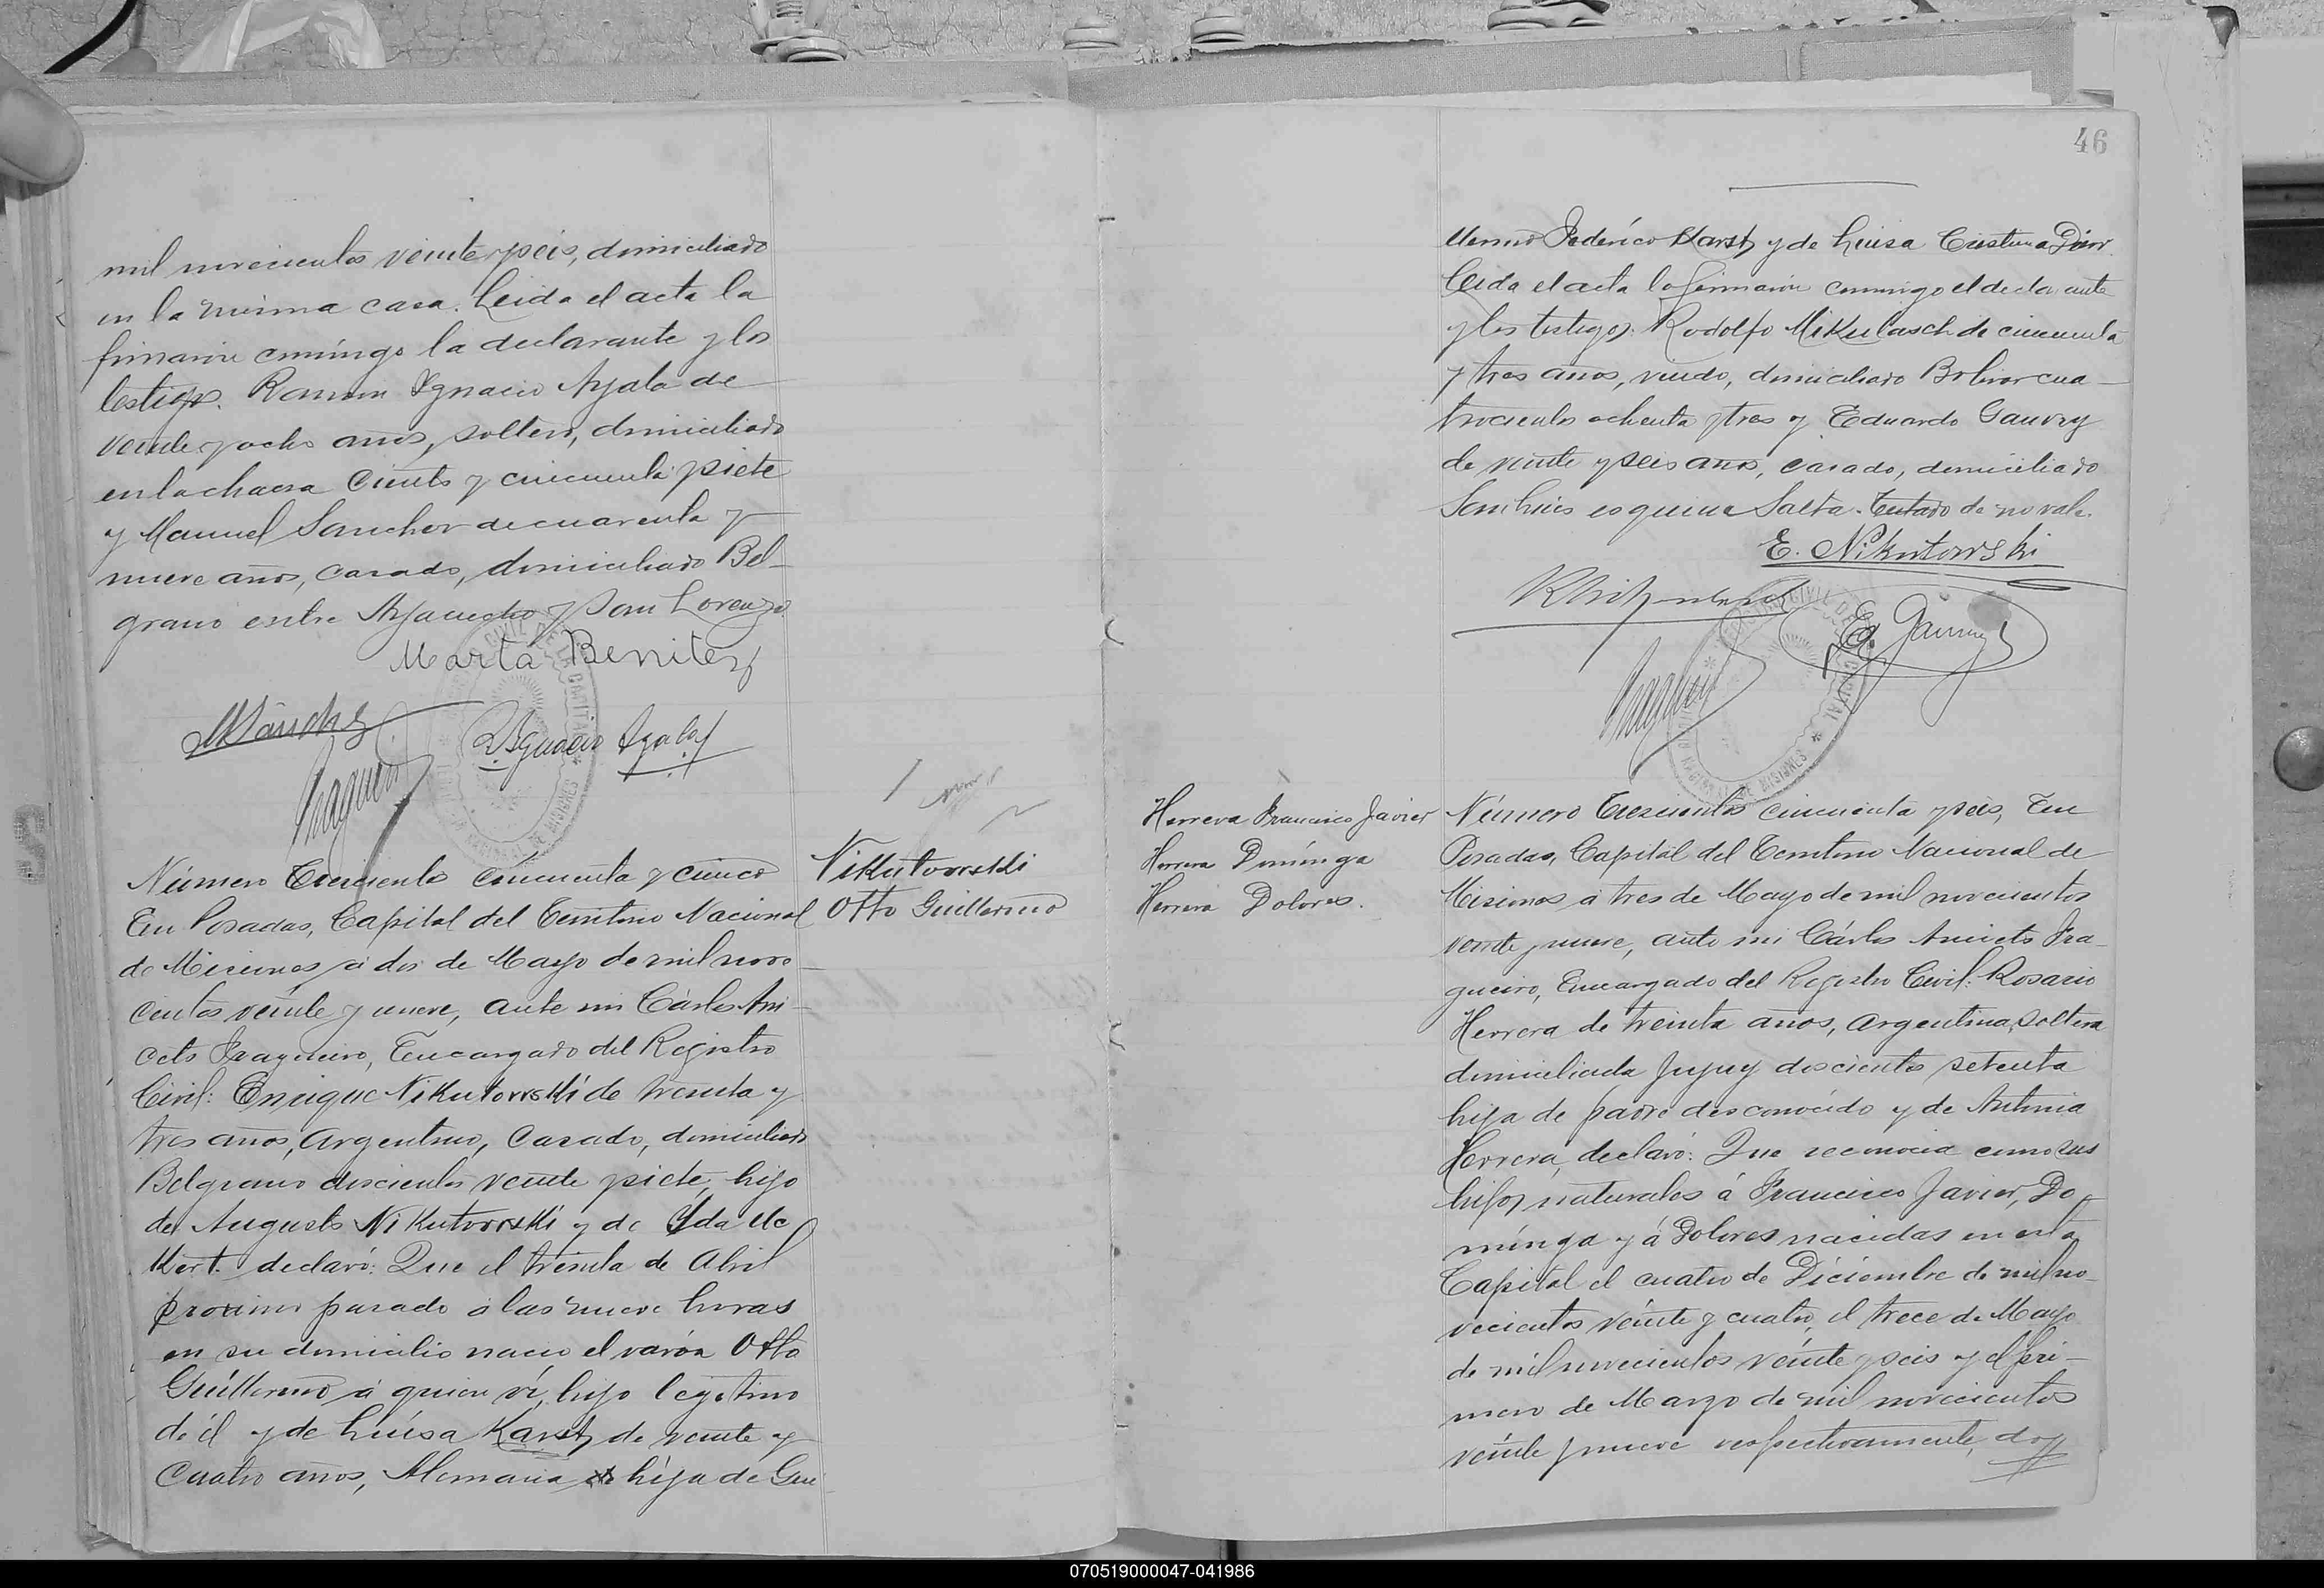 mil novecientos veinte y seis, domiciliado
en la misma casa. Leida el acta la
firmaron conmigo la declarante y los
testigos. Ramon Ignacio Ayala de
veinte y ocho años, soltero, domiciliado
en la chacra ciento y cincuenta y siete
y Manuel Sanchez de cuarenta y
nueve años, casado, domiciliado Bel-
grano entre Ayacucho y San Lorenzo.
Marta Benitez
MSanchez
R. Ignacio Ayala
Número Trescientos cincuenta y cinco
En Posadas, Capital del Territorio Nacional
de Misiones, á dos de Mayo de mil nove
cientos veinte y nueve, ante mi Cárlos Ani-
ceto Fragueiro, Encargado del Registro
Civil: Enrique Nikutowski de treinta y
tres años, Argentino, casado, domiciliado
Belgrano doscientos veinte y siete, hijo
de Augusto Nikutowski y de Ida
declaró: Que el treinta de Abril
próximo pasado á las nueve horas
en su domicilio nació el varón Otto
Guillermo á quien ví, hijo legítimo
de él y de Luisa Karst, de veinte y
cuatro años, Alemana hija de Gui
Nikutowski
Otto Guillermo
46
llermo Federico Karst y de Luisa Cristina
Leida el acta la firmaron conmigo el declarante
y los testigos: Rodolfo Mikulasch de cincuenta
y tres años, viudo, domiciliado Bolivar cua-
trocientos ochenta y tres y Eduardo Gauvry
de veinte y seis años, casado, domiciliado
San Luis esquina Salta. Testado de no vale.
E. Nikutowski
Herrera Francisco Javier
Herrera Domínga
Herrera Dolores.
Número Trescientos cincuenta y seis, En
Posadas, Capital del Territorio Nacional de
Misiones á tres de Mayo de mil novecientos
veinte y nueve, ante mi Cárlos Aniceto Fra-
gueiro, Encargado del Registro Civil: Rosario
Herrera de treinta años, Argentina, soltera
domiciliada Jujuy doscientos setenta
hija de padre desconocido y de Antonia
Herrera, declaró: Que reconocia como sus
hijos naturales á Francisco Javier, Do
mínga y á Dolores nacidas en esta
Capital el cuatro de Diciembre de mil no-
vecientos veinte y cuatro, el trece de Mayo
de mil novecientos veinte y seis y el pri-
mero de Marzo de mil novecientos
veinte y nueve respectivamente, doy
070519000047-041986